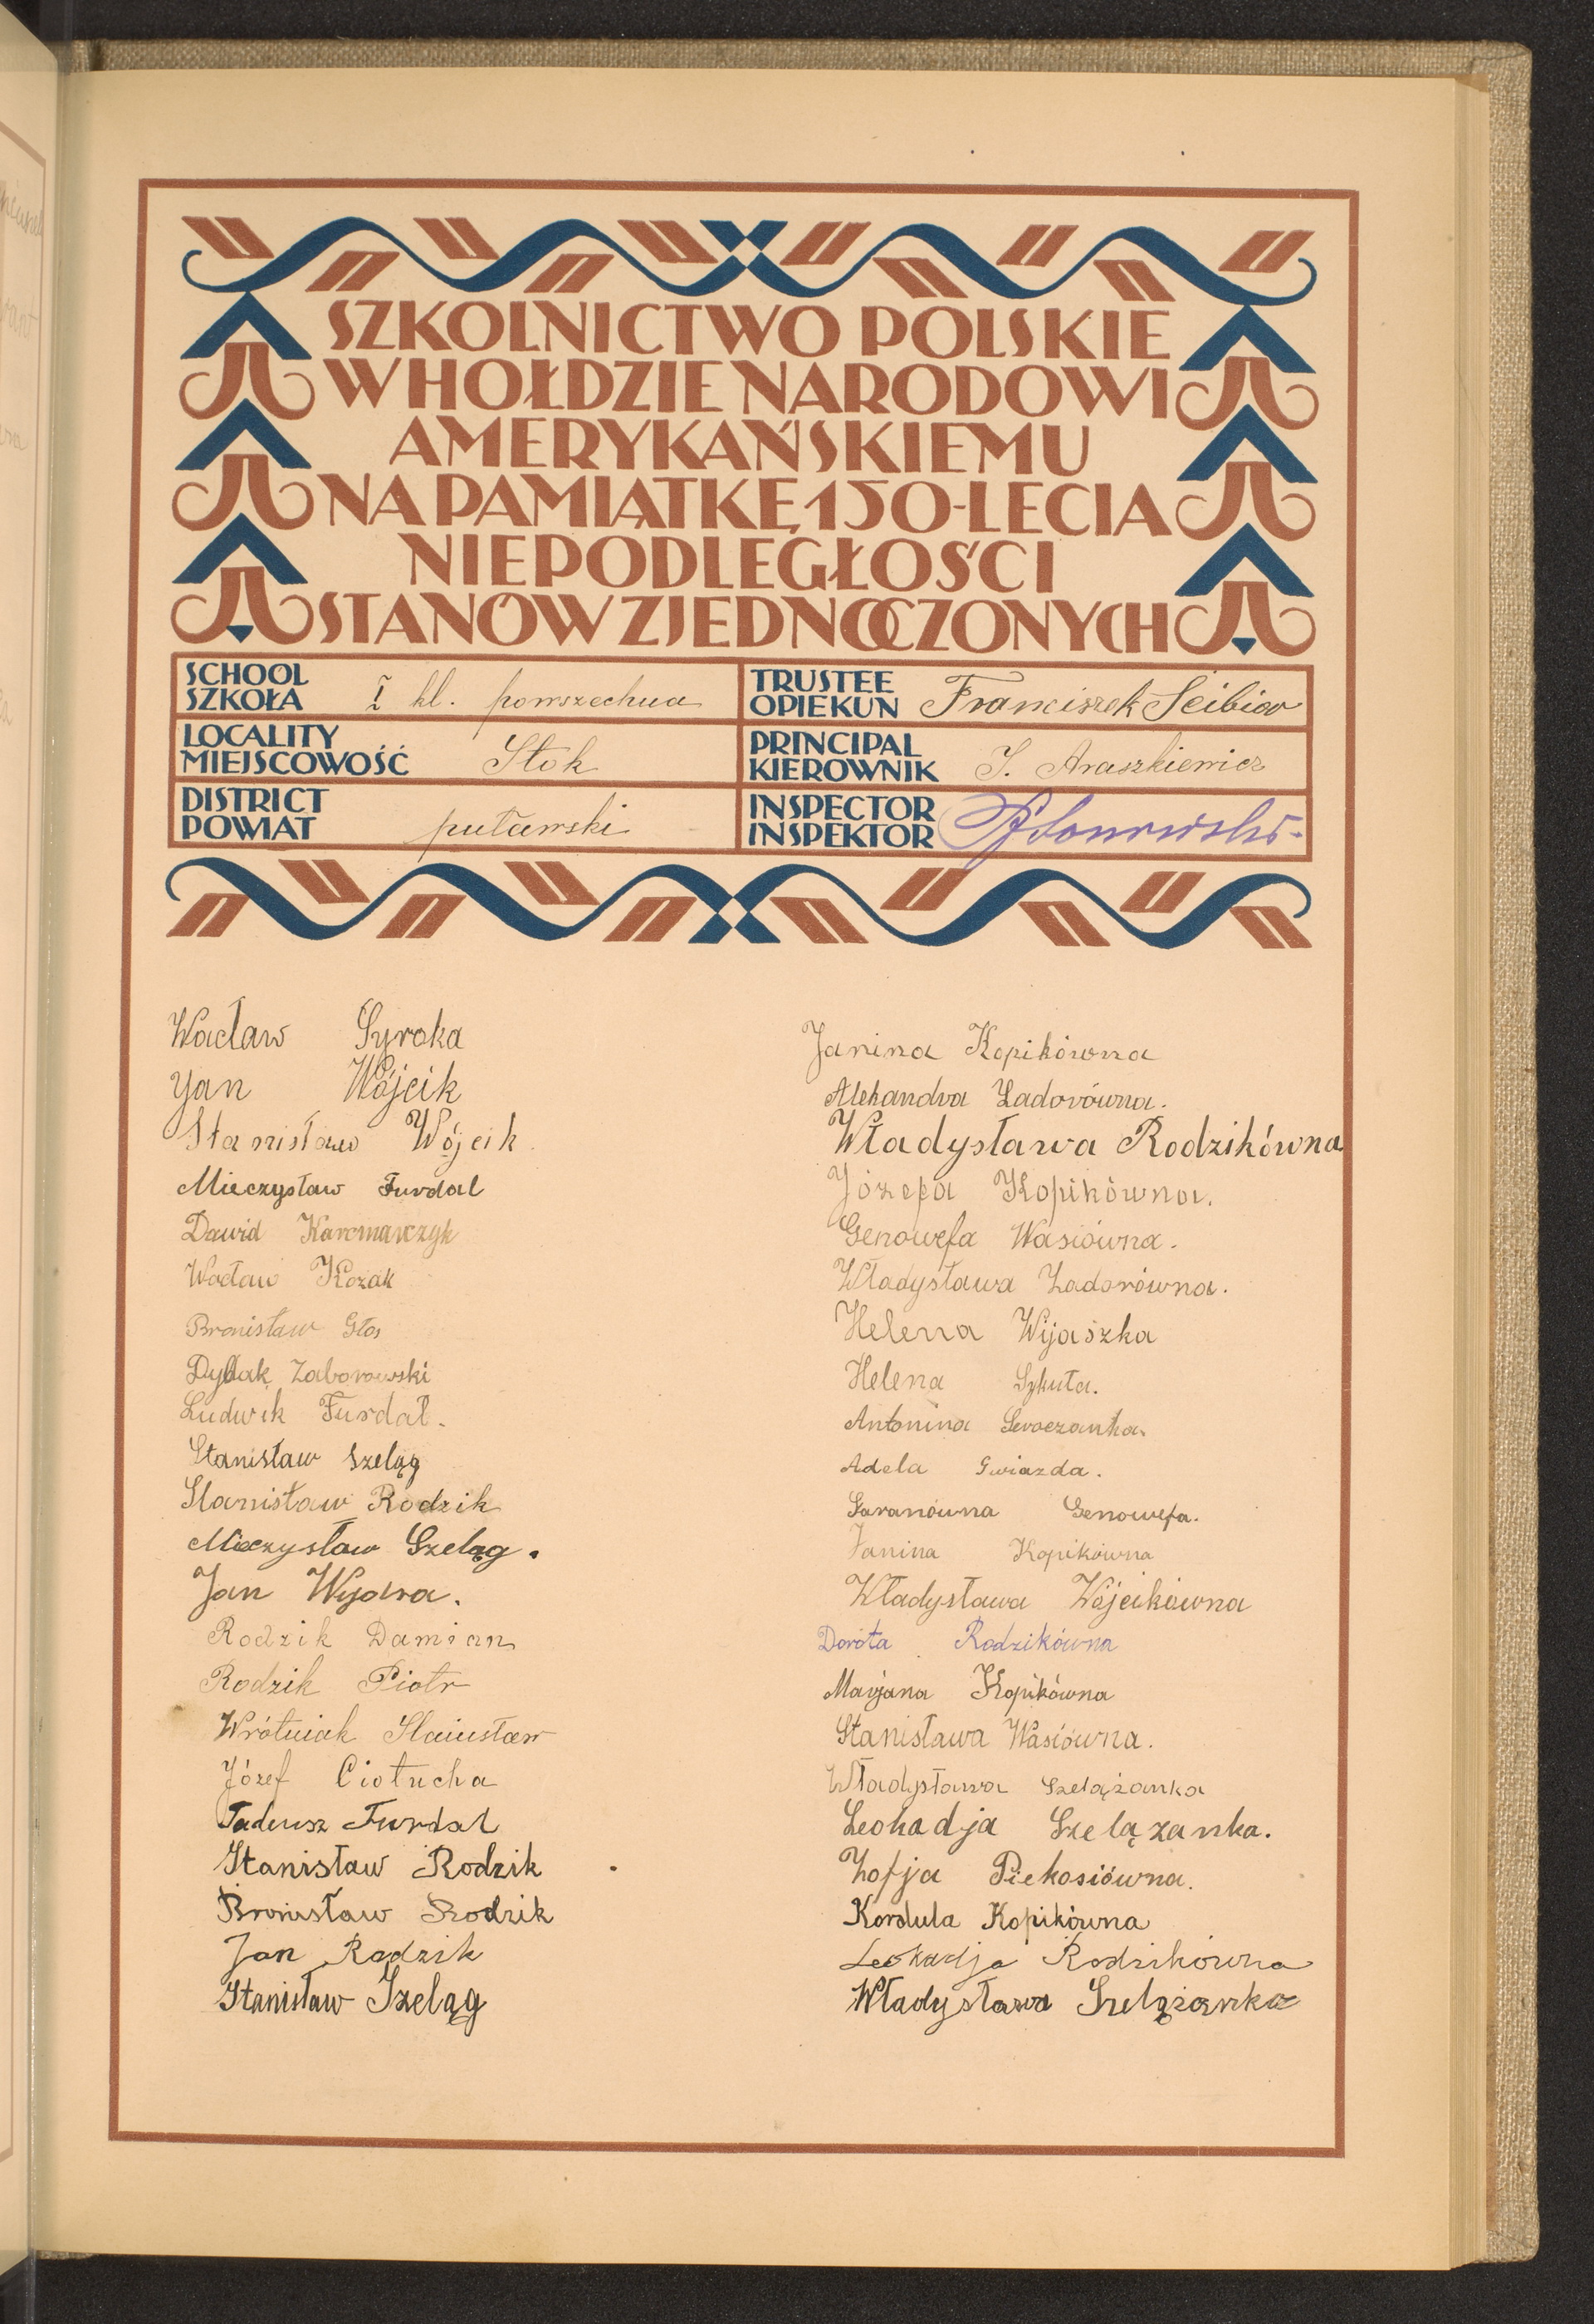 SZKOLNICTWO POLSKIE
W HOŁDZIE NARODOWI
AMERYKAŃSKIEMU
NA PAMIĄTKĘ 150-LECIA
NIEPODLEGŁOŚCI
STANÓW ZJEDNOCZONYCH
SCHOOL
SZKOŁA I kl. powszechna
LOCALITY
MIEJSCOWOŚĆ Stok
DISTRICT
POWIAT puławski
TRUSTEE
OPIEKUN Franciszek Ścibior
PRINCIPAL
KIEROWNIK J. Araszkiewicz
INSPECTOR
INSPEKTOR
Wacław Syroka
Yan Wójcik
Stanisław Wójcik
Mieczysław Furdal
Dawid Karcmarczyk
Wacław Kozak
Bronisław Głos
Dybak Zaborowski
Ludwik Furdal.
Stanisław Szeląg
Stanisław Rodzik
Mieczysław Szeląg.
Jan Wydra.
Rodzik Damian
Rodzik Piotr
Wrótniak Stanisław
Józef Ciotucha
Tadeusz Furdal
Stanisław Rodzik
Bronisław Rodzik
Jan Rodzik
Stanisław Szeląg
Janina Kopikówna
Aleksandra Zadorówna.
Władysława Rodzikówna
Józefa Kopikówna.
Genowefa Wasiówna.
Władysława Zadorówna.
Helena Wijaszka
Helena Sykuta.
Antonina
Adela Gwiazda.
Saranówna Genowefa.
Janina Kopikówna
Władysława Wójcikówna
Dorota Rodzikówna
Marjana Kopikówna
Stanisława Wasiówna.
Władysława Szelążanka
Leokadja Szelązanka.
Zofja Piekosiówna.
Kordula Kopikówna
Leokadja Rodzikówna
Władysława Szelążanka